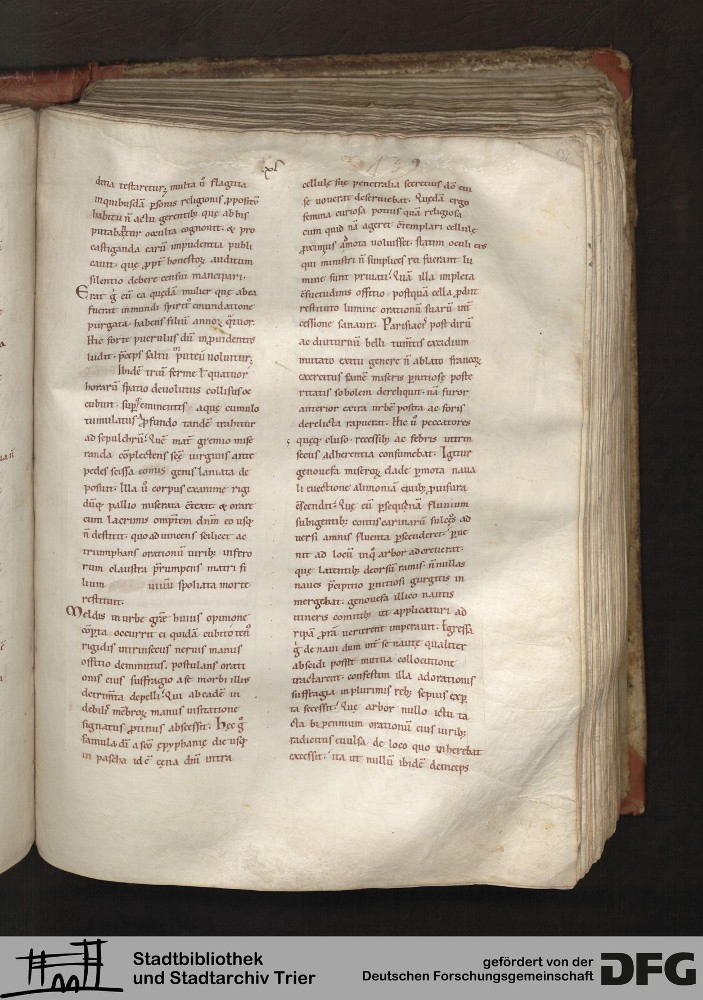 139
dina testaretur; multa ũ flagitia
inquibusdã ꝑsonis religionis ꝓpositũ
habitu ñ actu gerentib; quę ab his
putabatur occulta cognouit. & pro
castiganda earũ impudentia publi
cauit. que ꝓpt honestoꝝ auditum
silentio debere censui mancipari.
Erat g̊ cũ ea quędã mulier quę abea
fuerat inmundi spirit᷒ emundatione
purgata habens filiũ annoꝝ q̃tuor.
Hic forte puerulus dũ inprudentius
ludit. p̃ceps saltu in puteũ uoluitur;
Ibidẽ triũ ferme ł quatuor
horarũ spatio deuolutus collisus oc
cubuit. suꝑeminentis aquę cumulo
tumulatus. A ꝓfundo tandẽ trahitur
ad sepulchrũ. Quẽ mat̃ gremio mise
randa cõplectens scę uirginis ante
pedes scissa comis genis laniata de
posuit. Illa ũ corpus exanime rigi
dũq; pallio miserata cõtexit & orare
cum lacrimis omp̃tem dnm̃ eo usq;
ñ destitit. quo aduincens scilicet ac
triumphans orationũ uirib; infero
rum claustra p̃rumpens matri fi
lium uiuũ spoliata morte
restituit.
Meldis in urbe gr̃ae huius opinione
cõpta occurrit ei quidã cubito ten᷒
rigidis intrinsecus neruis manus
offitio deminutus. postulans orati
onis eius suffragio a se morbi illius
detrim̃ta depelli. Qui ab eadẽ in
debilẽ mẽbroꝝ manus uisitatione
signatus ꝓtinus abscessit. Hęc g̊
famula dĩ a scõ ępyphanię die usq;
in pascha id ẽ cęna dñi intra
cellulę suę penetralia secretius dõ cui
se uouerat deseruiebat. Quedã ergo
femina curiosa potius quã religiosa
cum quid nã ageret cõtemplari cellulę
ꝓximius amota uoluisset. statim oculi eis
qui ministri ñ simplices rei fuerant lu
mine sunt priuati. Quã illa impleta
cõsuetudinis offitio postquã cella ꝓdiit
restituto lumine orationũ suarũ int̃
cessione sanauit. Parisiacẽ post dirũ
ac diuturnũ belli tumtis excidium
mutato exitu genere ñ ablato francoꝝ
exercitus famẽ miseris ꝑnitiosę poste
ritatis sobolem dereliquit. nã furor
anterior extra urbẽ posita ac foris
derelicta rapuerat. Hic ũ peccatores
quęq; cluso. recessib; ac febris intrin
secus adherentia consumebat. Igitur
genouefa miseroꝝ clade ꝑmota naua
li euectione alimoniã ciuib; ꝓuisura
cõscendit. Que cũ ꝑsequenã fluuium
subigentib; contis carinarũ sulcos ad
uersi amnis fluenta ꝑscenderet. ꝑue
nit ad locũ inq̊ arbor adcreuerat.
quę latentib; deorsũ ramis ñ nullas
naues p̃cipitio ꝑnitiosi gurgitis in
mergebat. genouefa illico nautis
itineris comitib; ut applicaturi ad
ripã ꝓrã uerterent imperauit. Egressa
g̊ de naui dum int̃ se nautę qualiter
abscidi posset mutua collocutione
tractarent. confestim illa adorationis
suffragia in plurimis reb; sepius exp̃
ta secessit. Quę arbor nullo ictu ta
cta bipennium orationũ eius uirib;
radicitus euulsa de loco quo inherebat
excessit. ita ut nullũ ibidẽ deinceps
Stadtbibliothek
und Stadtarchiv Trier
gefördert von der
Deutschen Forschungsgemeinschaft
DFG